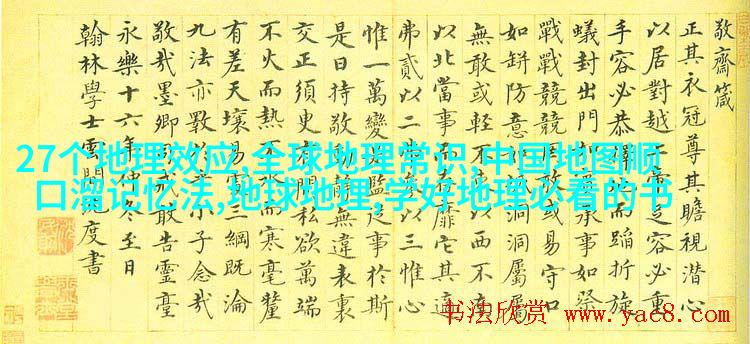 敬齋箴
正其衣冠尊其瞻視潛心
以居對越足容必重
手容必恭而蹈折旋
蟻封出門如承事如祭
戰戰兢兢敢或易守口
如缾防意洞洞屬屬
無敢或輕不以西不南
以北當事而靡它其適
弗貳以二以三惟心
惟一萬變監從事於斯
是日持敬無違表裏
交正須臾私欲萬端
不火而熱而寒毫釐
有差天壤易三綱既淪
九法亦斁小子念哉
敬哉墨卿敢告靈臺
永樂十六年仲冬至日
翰林學士雲間沈度書
27个地理效应,全球地理常识,中国地图顺
口溜记忆法,地球地理,学好地理必看的书
书法欣赏
www.yac8.com